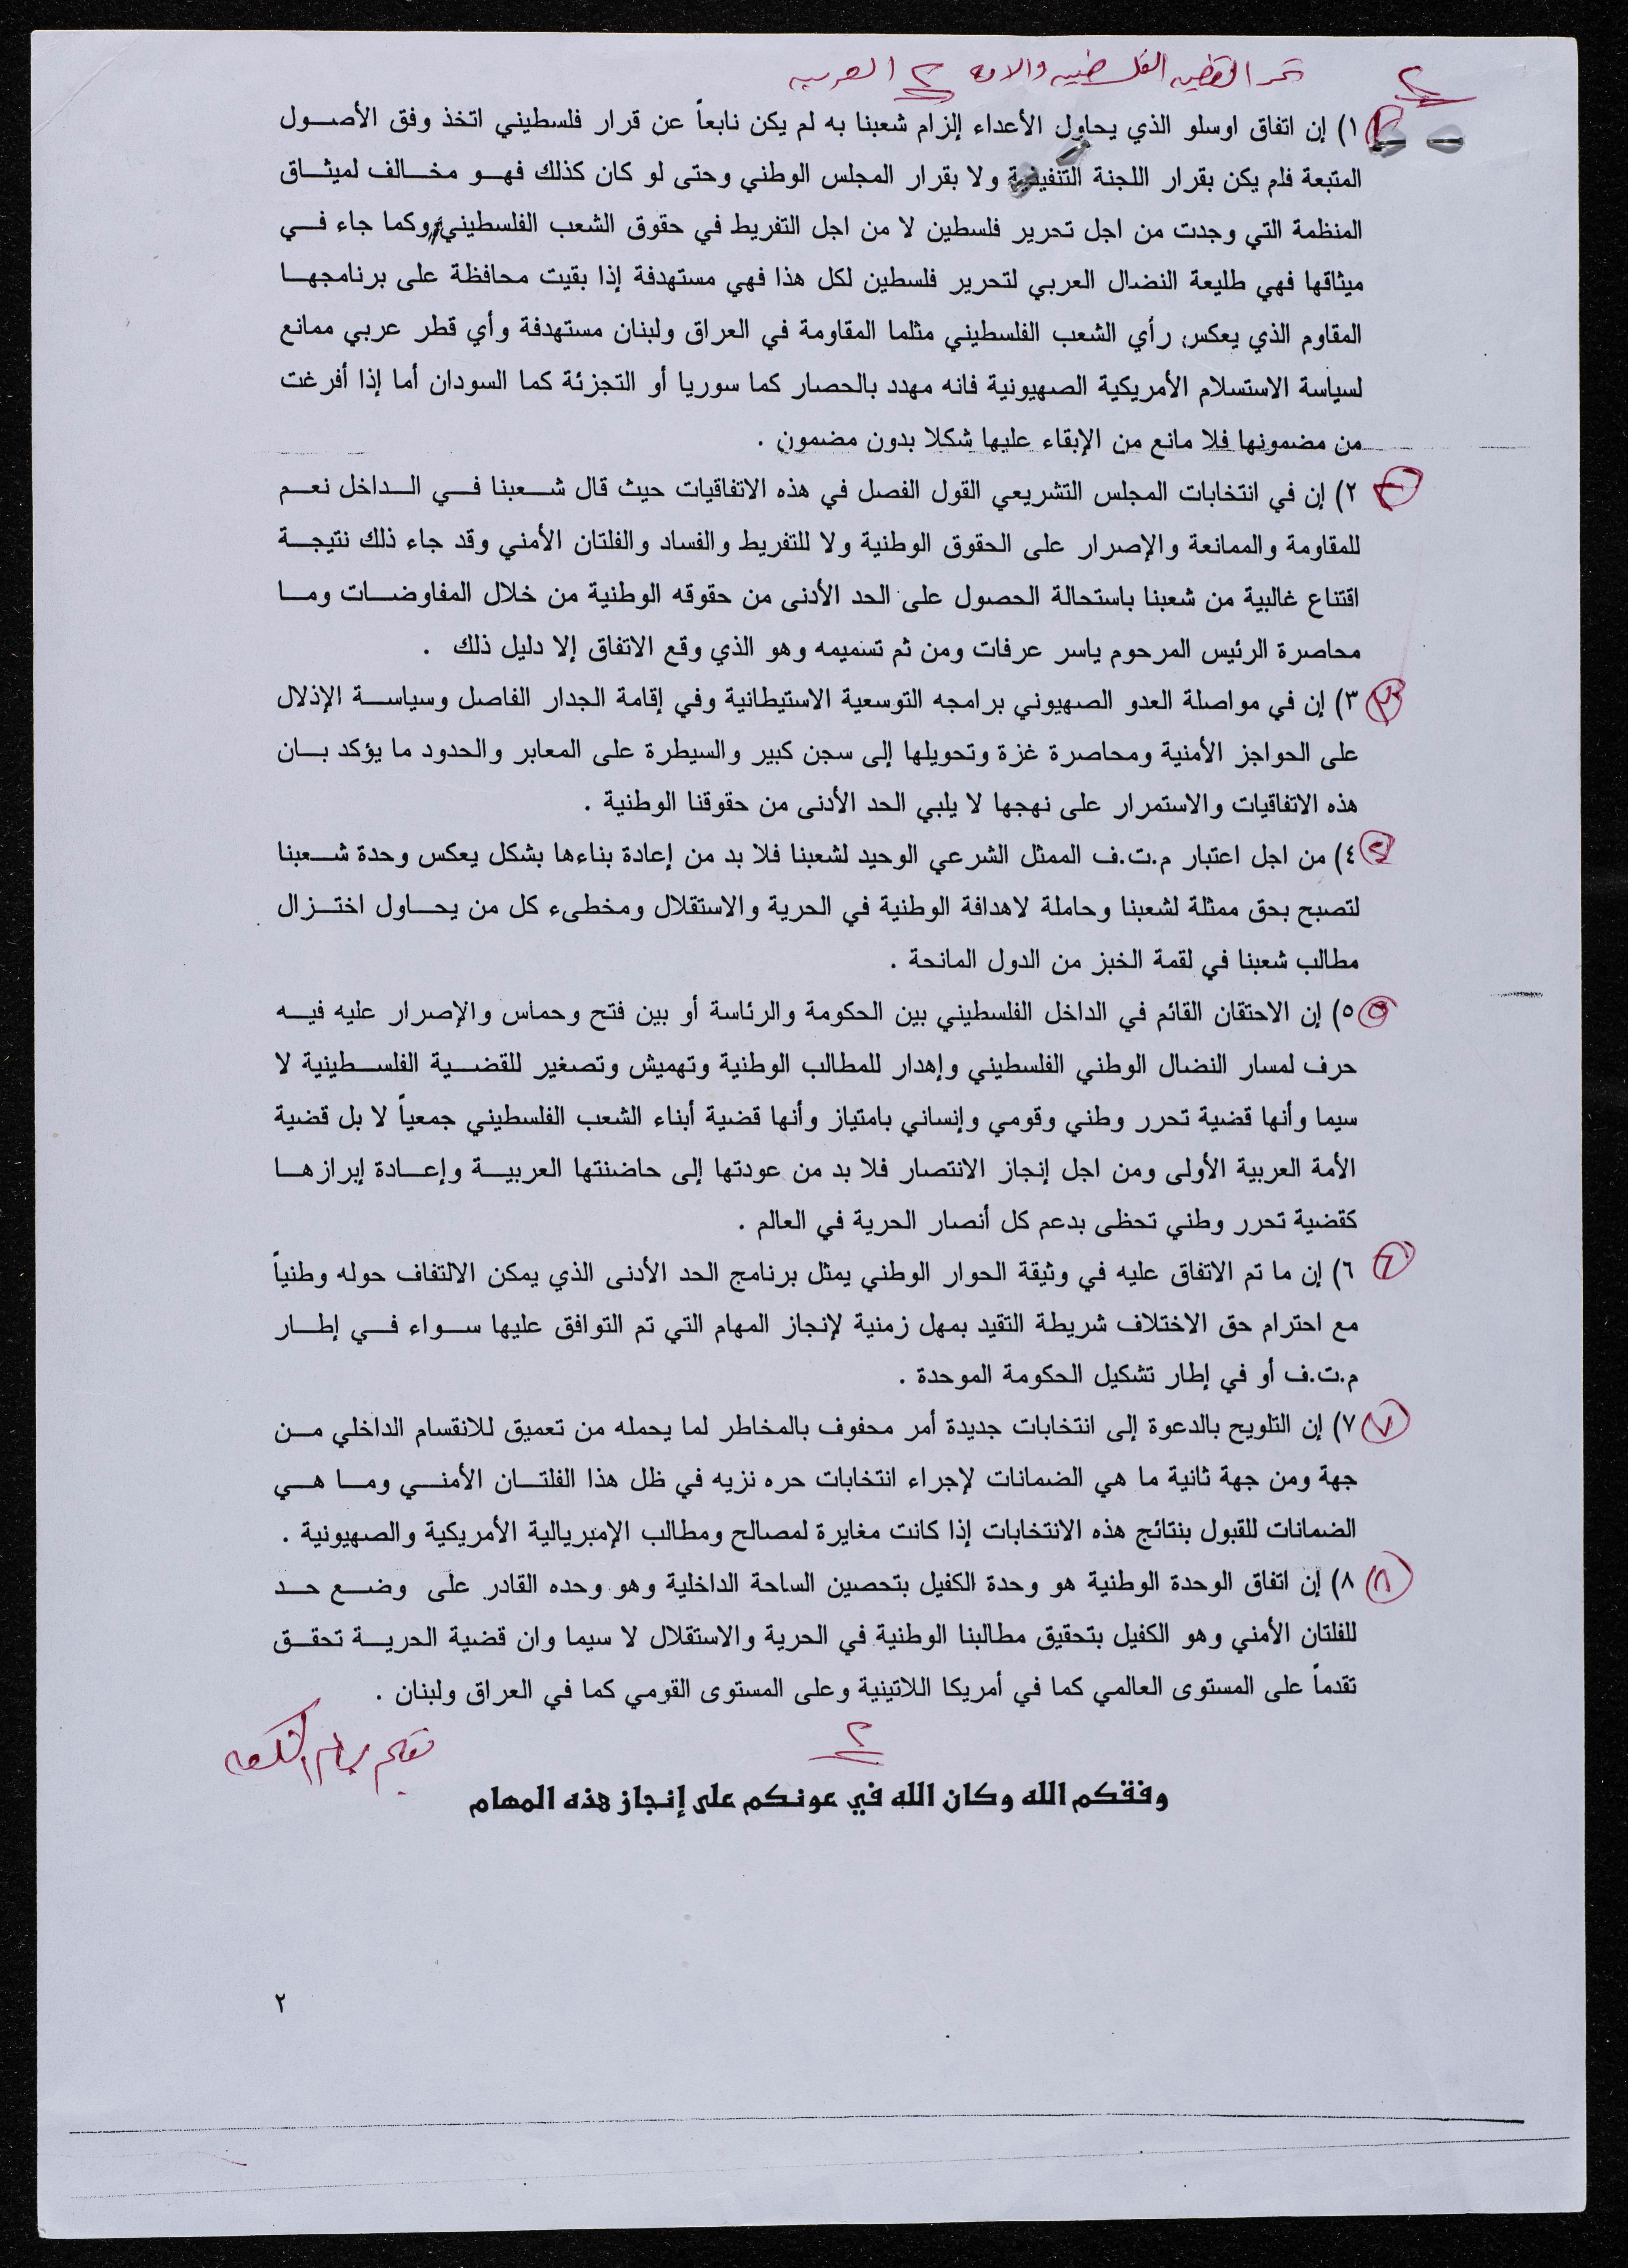 تمر القضيه الفلسطينيه والامه العربيه
٢
٢
١) إن اتفاق اوسلو الذي يحاول الأعداء إلزام شعبنا به لم يكن نابعاً عن قرار فلسطيني اتخذ وفق الأصول
المتبعة فلم يكن بقرار اللجنة التنفيذية ولا بقرار المجلس الوطني وحتى لو كان كذلك فهو مخالف لميثاق
المنظمة التي وجدت من اجل تحرير فلسطين لا من اجل التفريط في حقوق الشعب الفلسطيني وكما جاء في
ميثاقها فهي طليعة النضال العربي لتحرير فلسطين لكل هذا فهي مستهدفة إذا بقيت محافظة على برنامجها
المقاوم الذي يعكس رأي الشعب الفلسطيني مثلما المقاومة في العراق ولبنان مستهدفة وأي قطر عربي ممانع
لسياسة الاستسلام الأمريكية الصهيونية فانه مهدد بالحصار كما سوريا أو التجزئة كما السودان أما إذا أفرغت
من مضمونها فلا مانع من الإبقاء عليها شكلا بدون مضمون .
٢) إن في انتخابات المجلس التشريعي القول الفصل في هذه الاتفاقيات حيث قال شعبنا في الداخل نعم
للمقاومة والممانعة والإصرار على الحقوق الوطنية ولا للتفريط والفساد والفلتان الأمني وقد جاء ذلك نتيجة
اقتناع غالبية من شعبنا باستحالة الحصول على الحد الأدنى من حقوقه الوطنية من خلال المفاوضات وما
محاصرة الرئيس المرحوم ياسر عرفات ومن ثم تسميمه وهو الذي وقع الاتفاق إلا دليل ذلك .
٣ ٣) إن في مواصلة العدو الصهيوني برامجه التوسعية الاستيطانية وفي إقامة الجدار الفاصل وسياسة الإذلال
على الحواجز الأمنية ومحاصرة غزة وتحويلها إلى سجن كبير والسيطرة على المعابر والحدود ما يؤكد بان
هذه الاتفاقيات والاستمرار على نهجها لا يلبي الحد الأدنى من حقوقنا الوطنية .
٤ ٤) من اجل اعتبار م.ت.ف الممثل الشرعي الوحيد لشعبنا فلا بد من إعادة بناءها بشكل يعكس وحدة شعبنا
لتصبح بحق ممثلة لشعبنا وحاملة لاهدافة الوطنية في الحرية والاستقلال ومخطىء كل من يحاول اختزال
مطالب شعبنا في لقمة الخبز من الدول المانحة .
٥ ٥) إن الاحتقان القائم في الداخل الفلسطيني بين الحكومة والرئاسة أو بين فتح وحماس والإصرار عليه فيه
حرف لمسار النضال الوطني الفلسطيني وإهدار للمطالب الوطنية وتهميش وتصغير للقضية الفلسطينية لا
سيما وأنها قضية تحرر وطني وقومي وإنساني بامتياز وأنها قضية أبناء الشعب الفلسطيني جمعياً لا بل قضية
الأمة العربية الأولى ومن اجل إنجاز الانتصار فلا بد من عودتها إلى حاضنتها العربية وإعادة إبرازها
كقضية تحرر وطني تحظى بدعم كل أنصار الحرية في العالم .
٦ ٦) إن ما تم الاتفاق عليه في وثيقة الحوار الوطني يمثل برنامج الحد الأدنى الذي يمكن الالتفاف حوله وطنياً
مع احترام حق الاختلاف شريطة التقيد بمهل زمنية لإنجاز المهام التي تم التوافق عليها سواء في إطار
م.ت.ف أو في إطار تشكيل الحكومة الموحدة .
٧ ٧) إن التلويح بالدعوة إلى انتخابات جديدة أمر محفوف بالمخاطر لما يحمله من تعميق للانقسام الداخلي من
جهة ومن جهة ثانية ما هي الضمانات لإجراء انتخابات حره نزيه في ظل هذا الفلتان الأمني وما هي
الضمانات للقبول بنتائج هذه الانتخابات إذا كانت مغايرة لمصالح ومطالب الإمبريالية الأمريكية والصهيونية .
٨ ٨) إن اتفاق الوحدة الوطنية هو وحدة الكفيل بتحصين الساحة الداخلية وهو وحده القادر على وضع حد
للفلتان الأمني وهو الكفيل بتحقيق مطالبنا الوطنية في الحرية والاستقلال لا سيما وان قضية الحرية تحقق
تقدماً على المستوى العالمي كما في أمريكا اللاتينية وعلى المستوى القومي كما في العراق ولبنان .
٢
وفقكم الله وكان الله في عونكم على إنجاز هذه المهام
٢